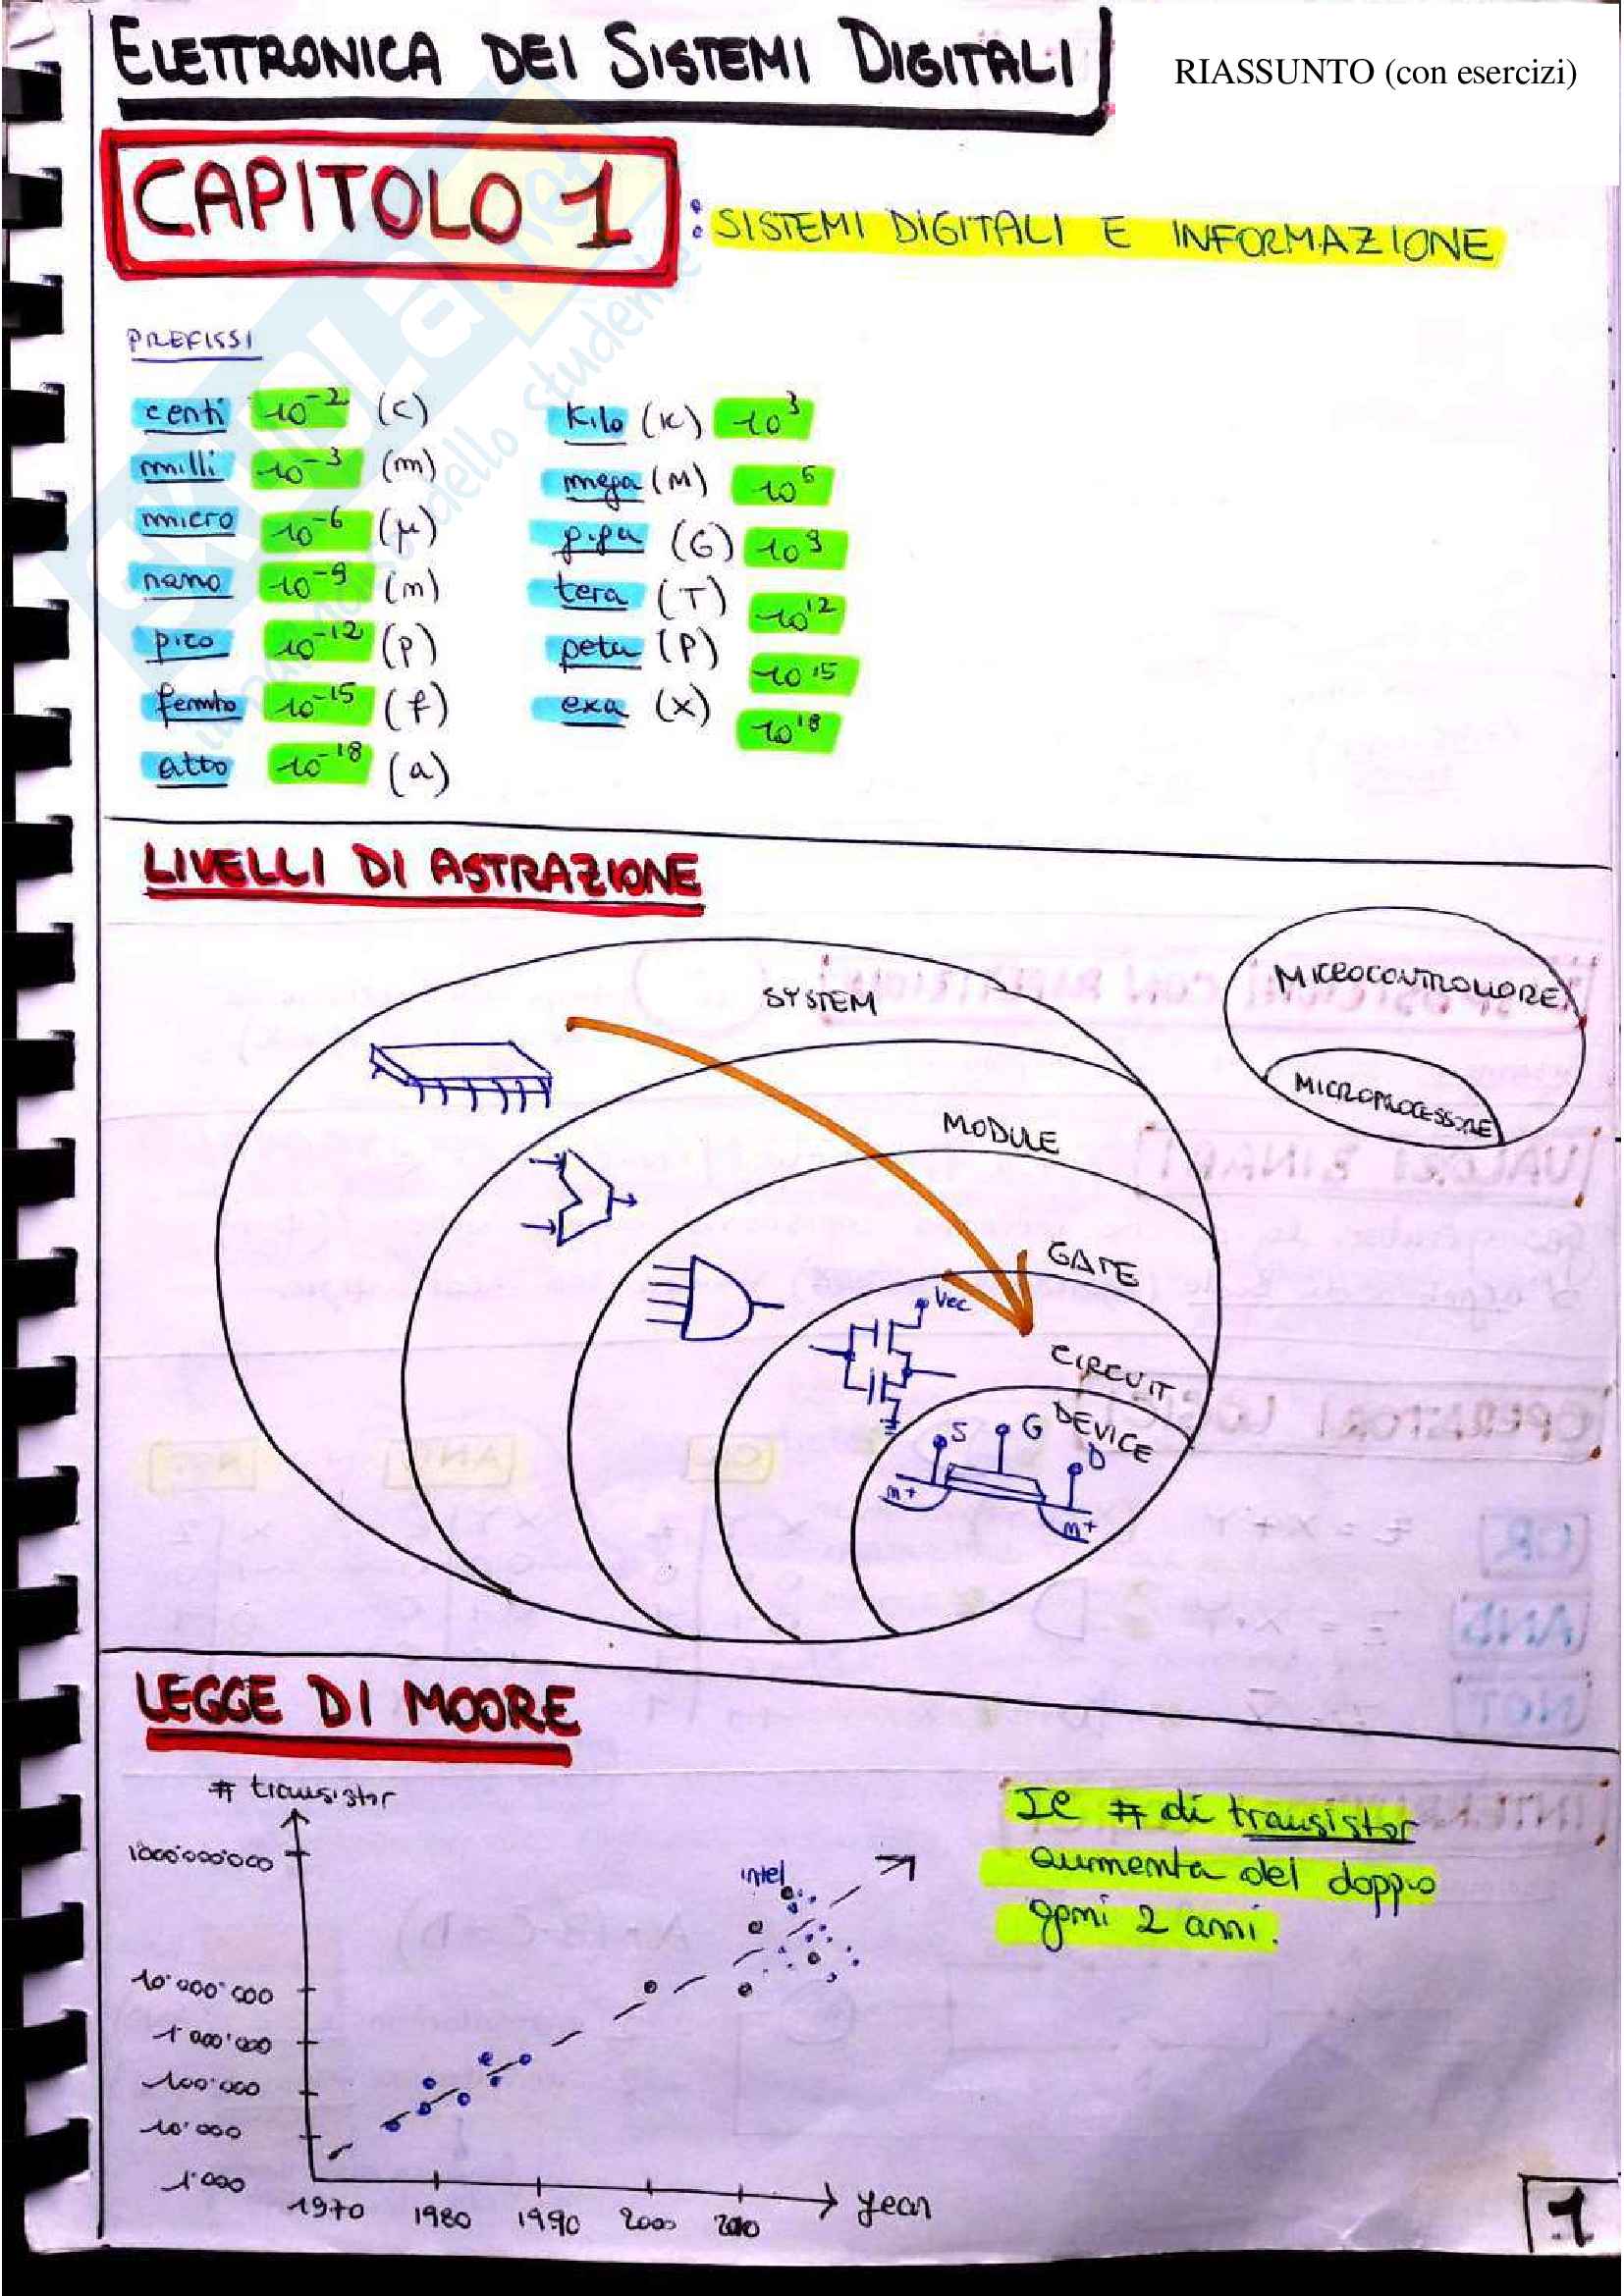 ELETTRONICA DEI SISTEMI DIGITALI
RIASSUNTO (con esercizi)
CAPITOLO 1 : SISTEMI DIGITALI E INFORMAZIONE
PREFISSI
centi 10⁻² (c)
milli 10⁻³ (m)
micro 10⁻⁶ (μ)
nano 10⁻⁹ (n)
pico 10⁻¹² (p)
femto 10⁻¹⁵ (f)
atto 10⁻¹⁸ (a)
Kilo (K) 10³
mega (M) 10⁶
giga (G) 10⁹
tera (T) 10¹²
peta (P) 10¹⁵
exa (x) 10¹⁸
LIVELLI DI ASTRAZIONE
SYSTEM
MODULE
GATE
Vcc
CIRCUIT
DEVICE
S G D
n+ n+
MICROCONTROLLORE
MICROPROCESSORE
LEGGE DI MOORE
# transistor
1000'000'000
10'000'000
1'000'000
100'000
10'000
1'000
intel
1970 1980 1990 2000 2010
year
Il # di transistor
aumenta del doppio
ogni 2 anni.
1
SKUOLA.net
dello studente